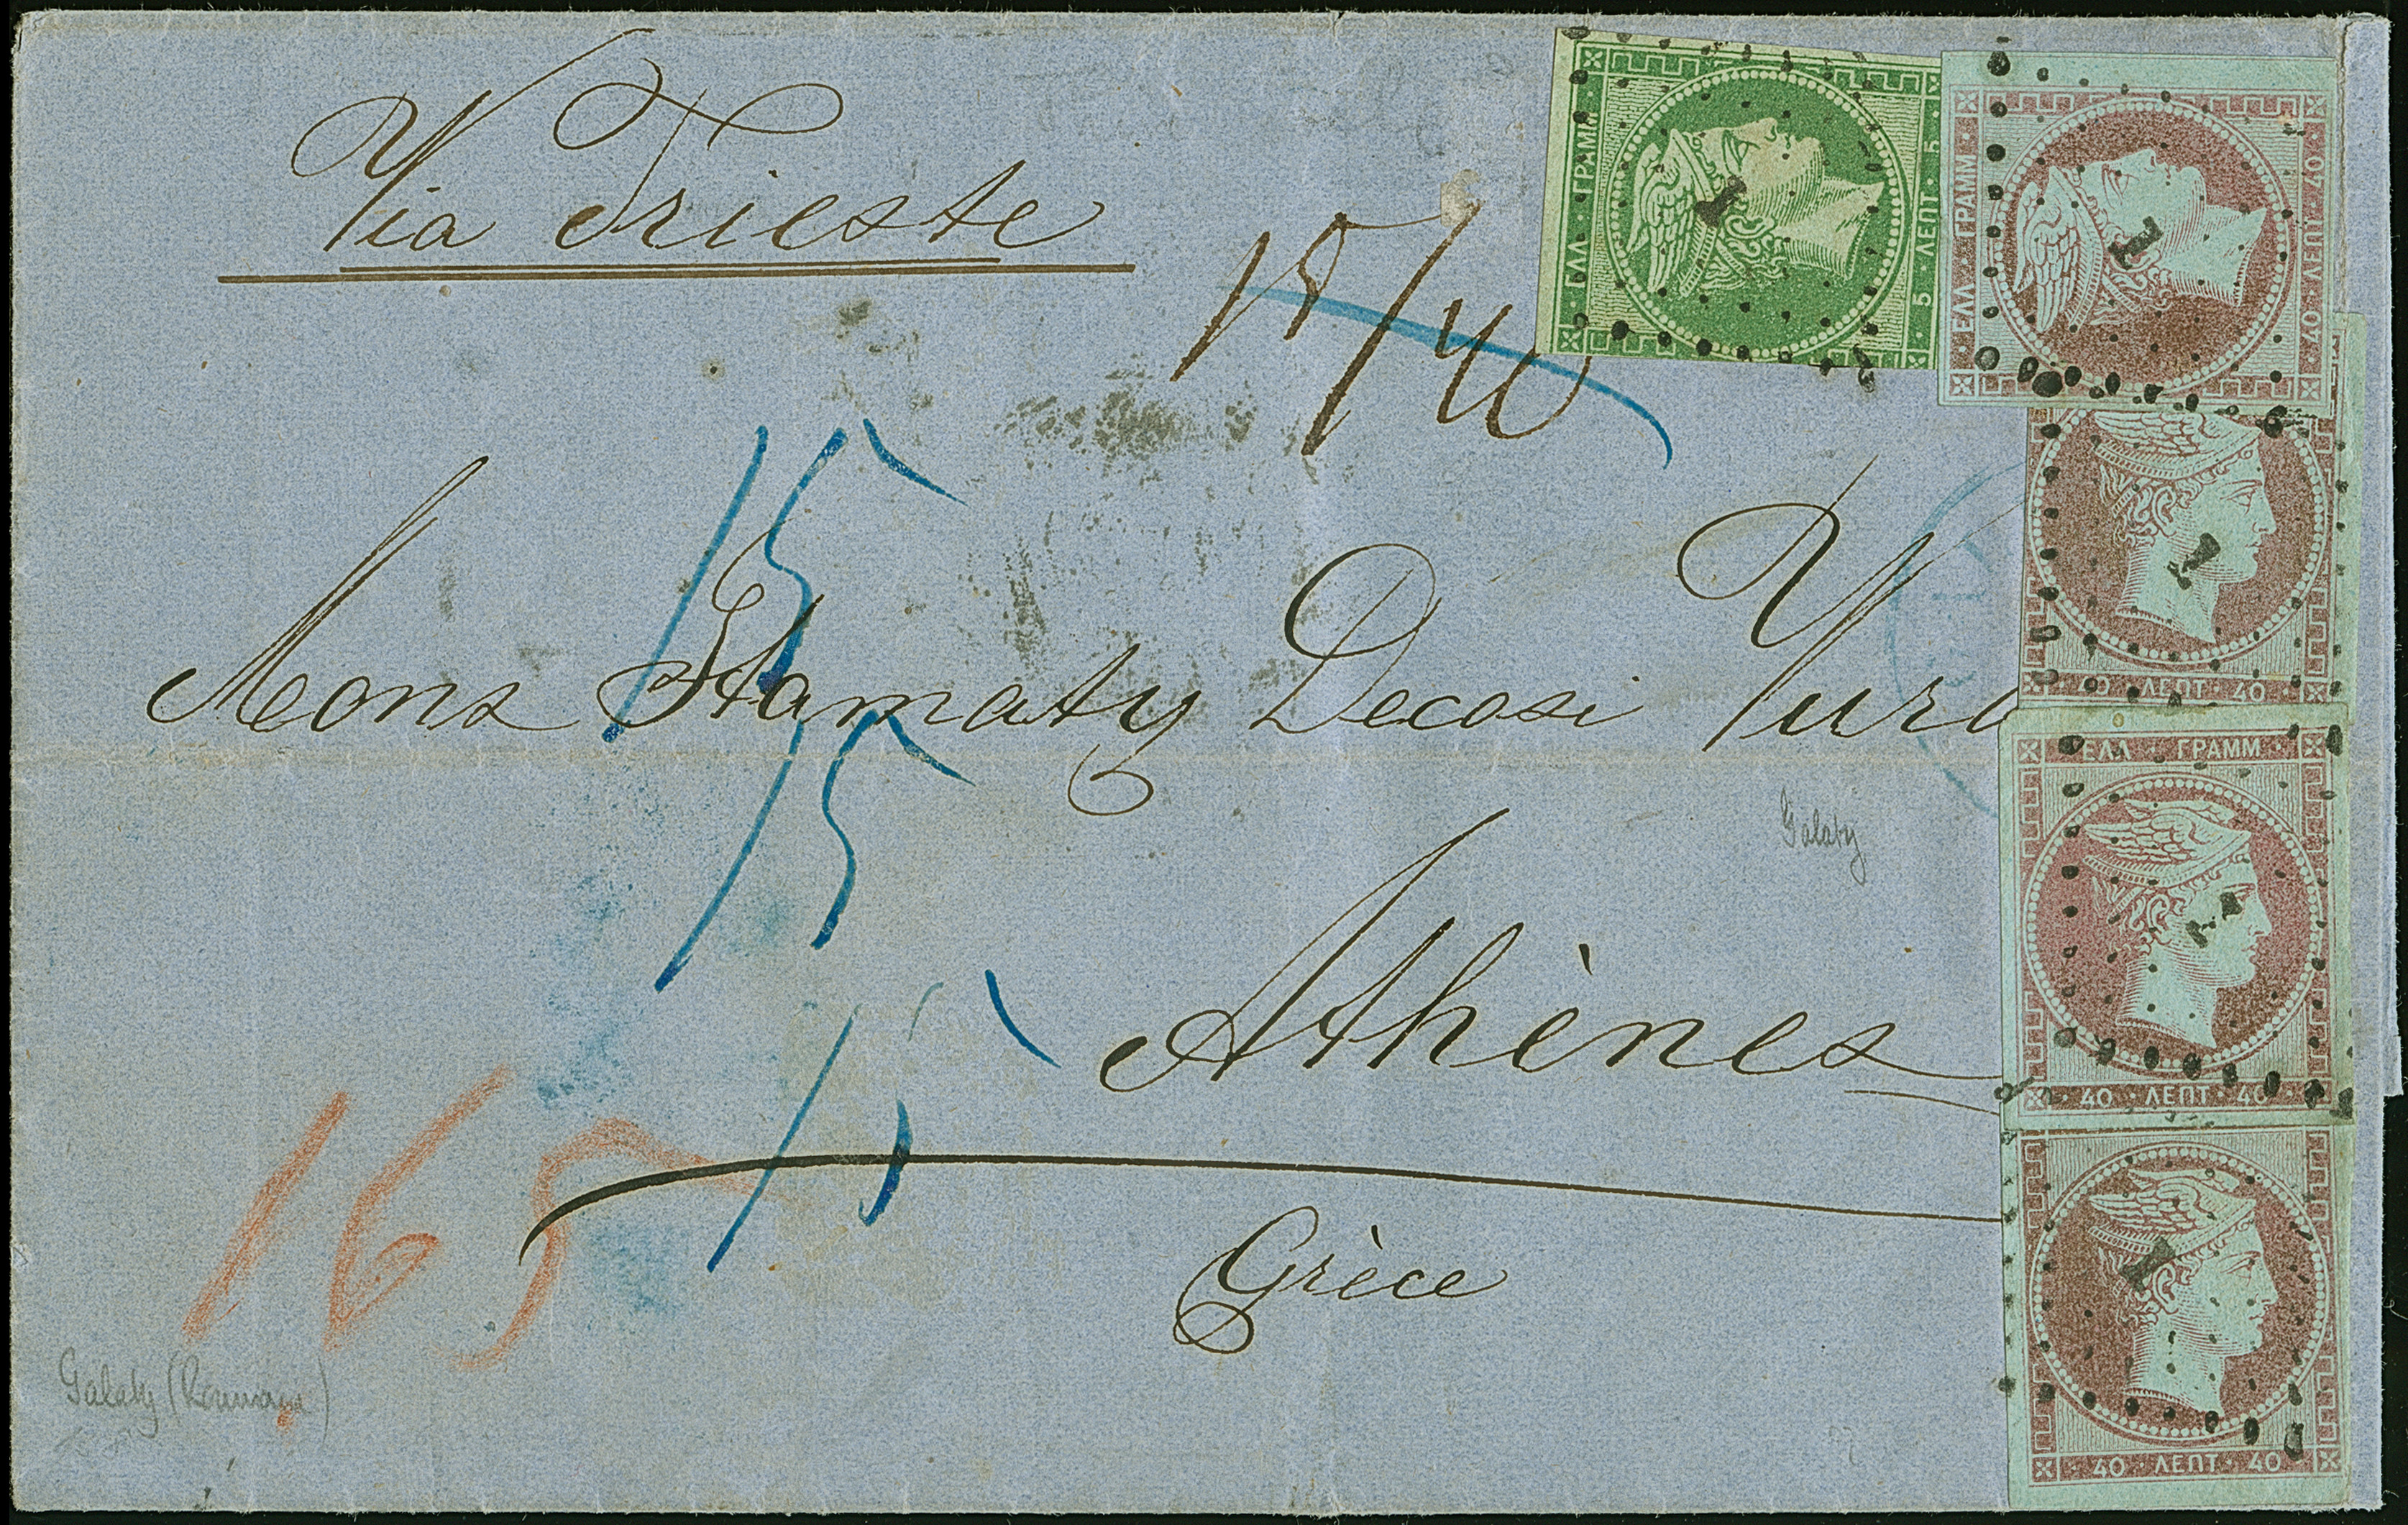 Via Trieste
15/40
15
Mons Stamaty Decosi
15
Galaty
Athènes
15
Grèce
165
Galaty (Roumanie)
ΕΛΛ · ΓΡΑΜΜ
5 · ΛΕΠΤ · 5
1
ΕΛΛ · ΓΡΑΜΜ ·
40 · ΛΕΠΤ · 40
1
40 · ΛΕΠΤ · 40
1
ΕΛΛ · ΓΡΑΜΜ ·
40 · ΛΕΠΤ · 40
1
40 · ΛΕΠΤ · 40
1